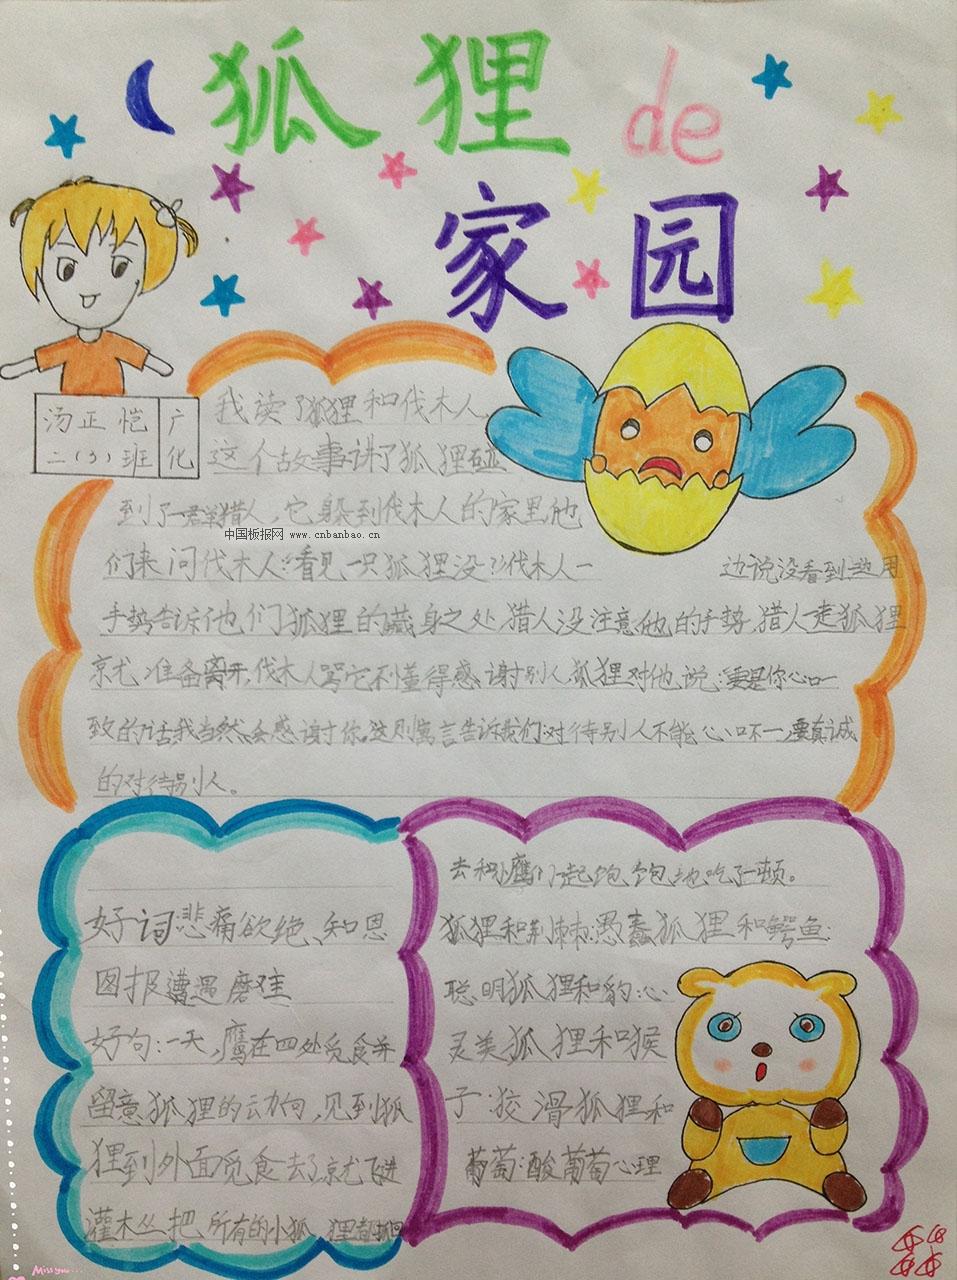 狐狸de
家园
汤正恺
二(3)班
广化
我读了狐狸和伐木人,
这个故事讲了狐狸碰
到了一群猎人,它躲到伐木人的家里他
中国板报网 www.cnbanbao.cn
们来问伐木人:"看见一只狐狸没?"伐木人一
边说没看到边用
手势告诉他们狐狸的藏身之处,猎人没注意他的手势,猎人走狐狸
就准备离开,伐木人骂它不懂得感谢别人,狐狸对他说:要是你心口一
致的话,我当然会感谢你,这则寓言告诉我们:对待别人不能心口不一,要真诚
的对待别人。
好词:悲痛欲绝、知恩
图报遭遇磨难
好句:一天,鹰在四处觅食并
留意狐狸的动向,见到狐
狸到外面觅食去了,就飞进
灌木丛把所有的小狐狸都抓回
去和鹰们一起饱饱地吃了一顿。
狐狸和荆棘:愚蠢狐狸和鳄鱼:
聪明狐狸和豹:心
灵美狐狸和猴
子:狡滑狐狸和
葡萄:酸葡萄心理
Miss you...